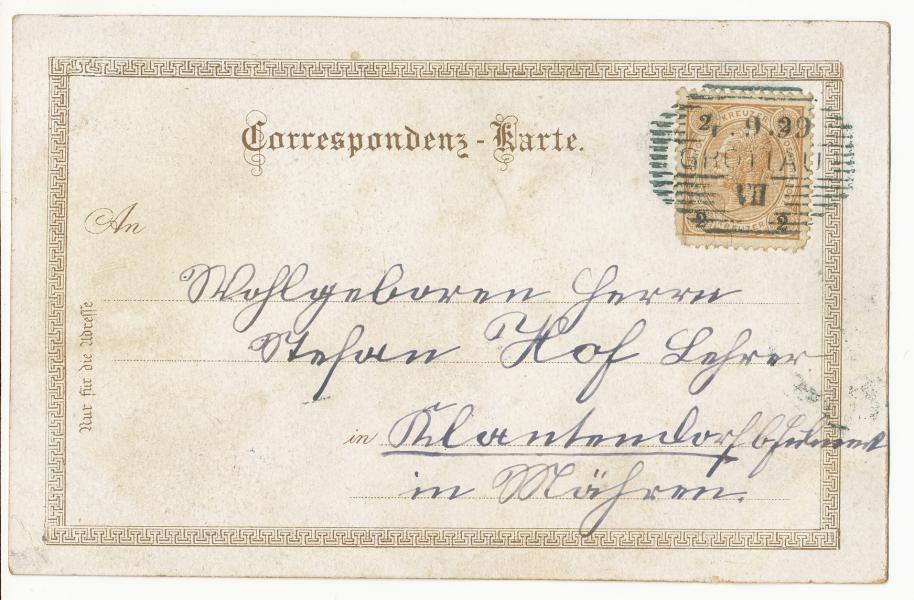 Correspondenz-Karte.
KREU
2 2
7.9.99
GROTTAU
VII
An
Wohlgeboren Herrn
Stefan Hof Lehrer
Nur für die Adresse
in Klantendorf
in Mähren.